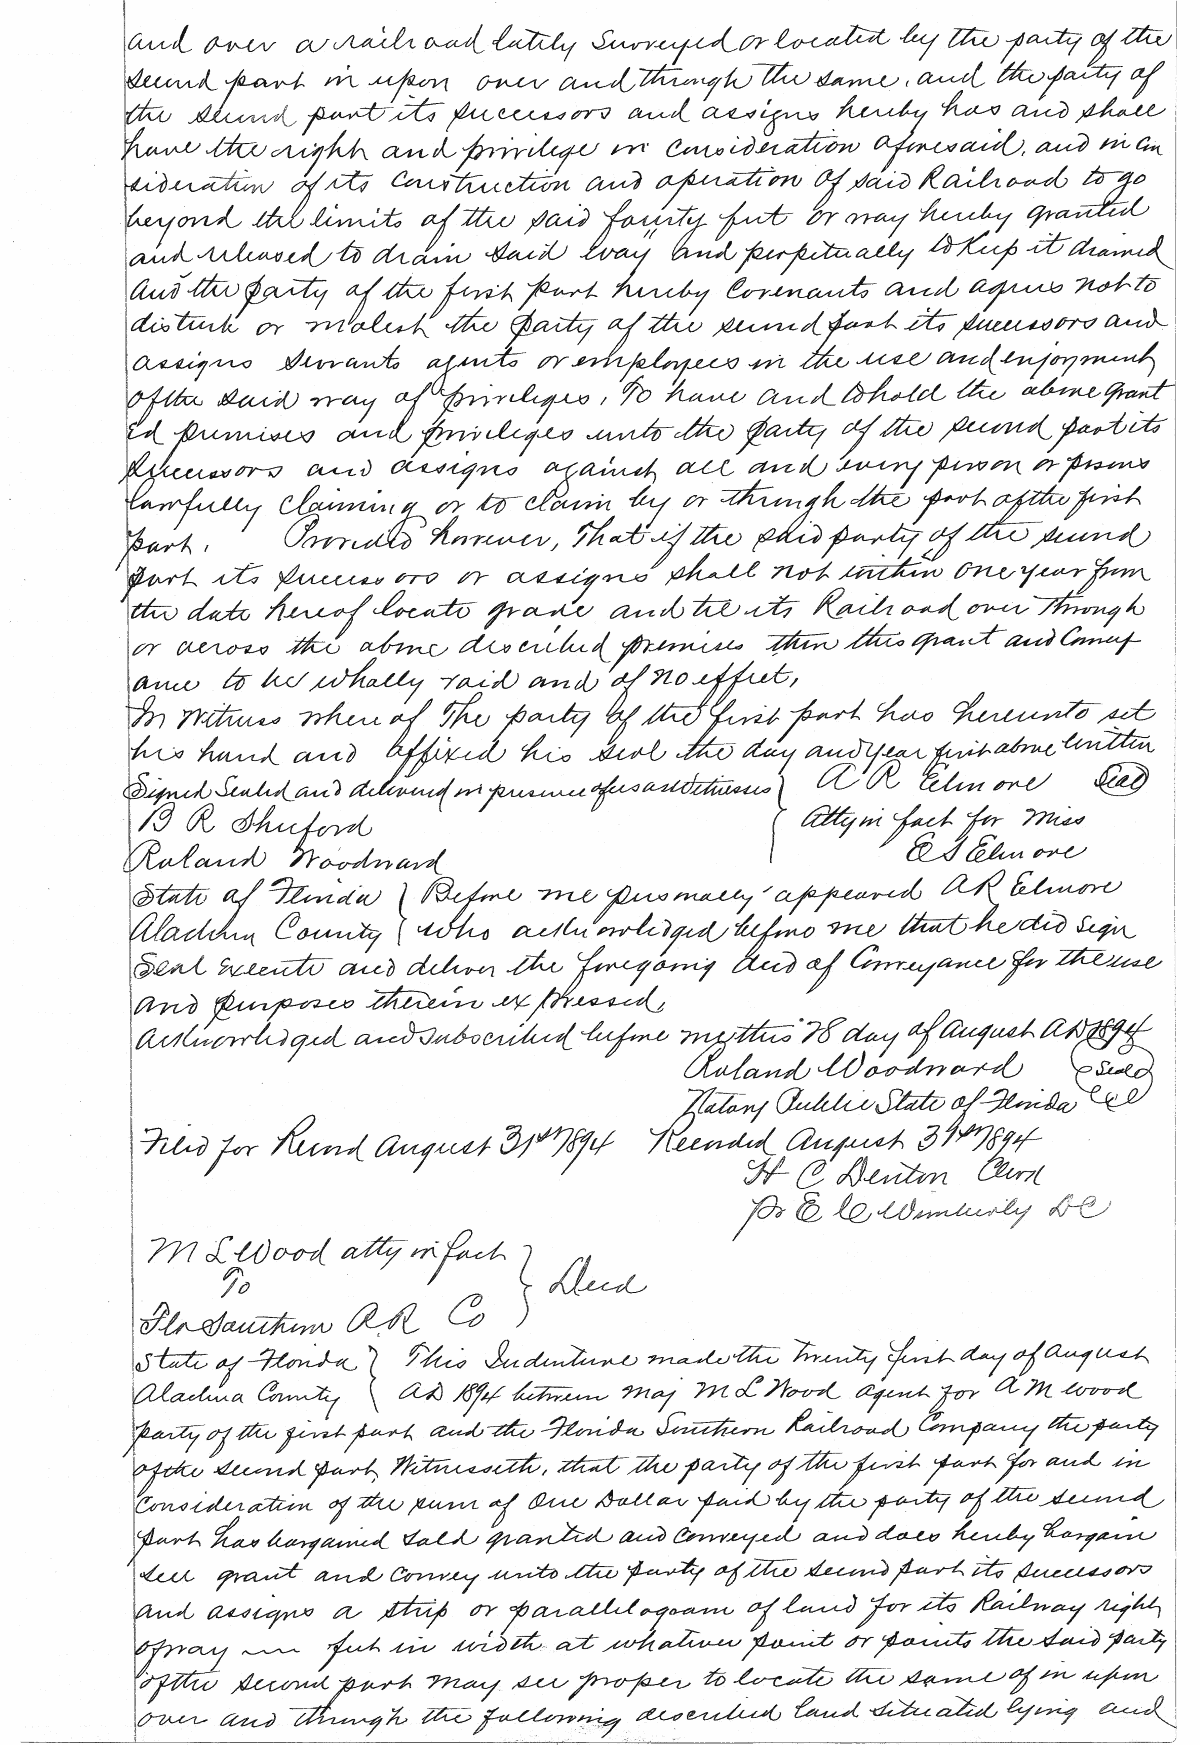 and over a railroad lately Surveyed or located by the party of the
second part in upon over and through the same, and the party of
the second part its successors and assigns hereby has and shall
have the right and privilege in consideration aforesaid, and in con
sideration of its construction and operation of said Railroad to go
beyond the limits of the said fourty feet or way hereby granted
and released to drain said way and perpetually to keep it drained
And the party of the first part hereby Covenants and agrees not to
disturb or molest the party of the second part its successors and
assigns servants agents or employees in the use and enjoyment
of the said way of privileges, To have and to hold the above grant
ed premises and privileges unto the party of the second part its
successors and assigns against all and every person or persons
lawfully claiming or to claim by or through the part of the first
part. Provided however, That if the said party of the second
part its successors or assigns shall not within one year from
the date hereof locate grade and tie its Railroad over through
or across the above described premises then this grant and Convey
ance to be wholly void and of no effect,
In Witness where of The party of the first part has hereunto set
his hand and affixed his seal the day and year first above written
Signed Sealed and delivered in presence of us as witnesses } A R Elmore Seal
B R Shuford Atty in fact for Miss
Roland Woodward E S Elmore
State of Florida } Before me personally appeared A R Elmore
Alachua County } who acknowledged before me that he did sign
Seal execute and deliver the foregoing deed of Conveyance for the use
and purposes therein expressed,
Acknowledged and subscribed before me this 28 day of August A D 1894
Roland Woodward Seal
Notary Public State of Florida
Filed for Record August 31st 1894 Recorded August 31st 1894
H C Denton Clerk
Pr E C Wimberly D C
M L Wood atty in fact
To } Deed
Fla Southern R R Co
State of Florida } This Indenture made the twenty first day of August
Alachua County } A D 1894 between Maj M L Wood agent for A M Wood
party of the first part and the Florida Southern Railroad Company the party
of the second part, Witnesseth, that the party of the first part for and in
consideration of the sum of One Dollar paid by the party of the second
part has bargained sold granted and conveyed and does hereby bargain
sell grant and convey unto the party of the second part its successors
and assigns a strip or parallelogram of land for its Railway right
of way feet in width at whatever point or points the said party
of the second part may see proper to locate the same of in upon
over and through the following described land situated lying and